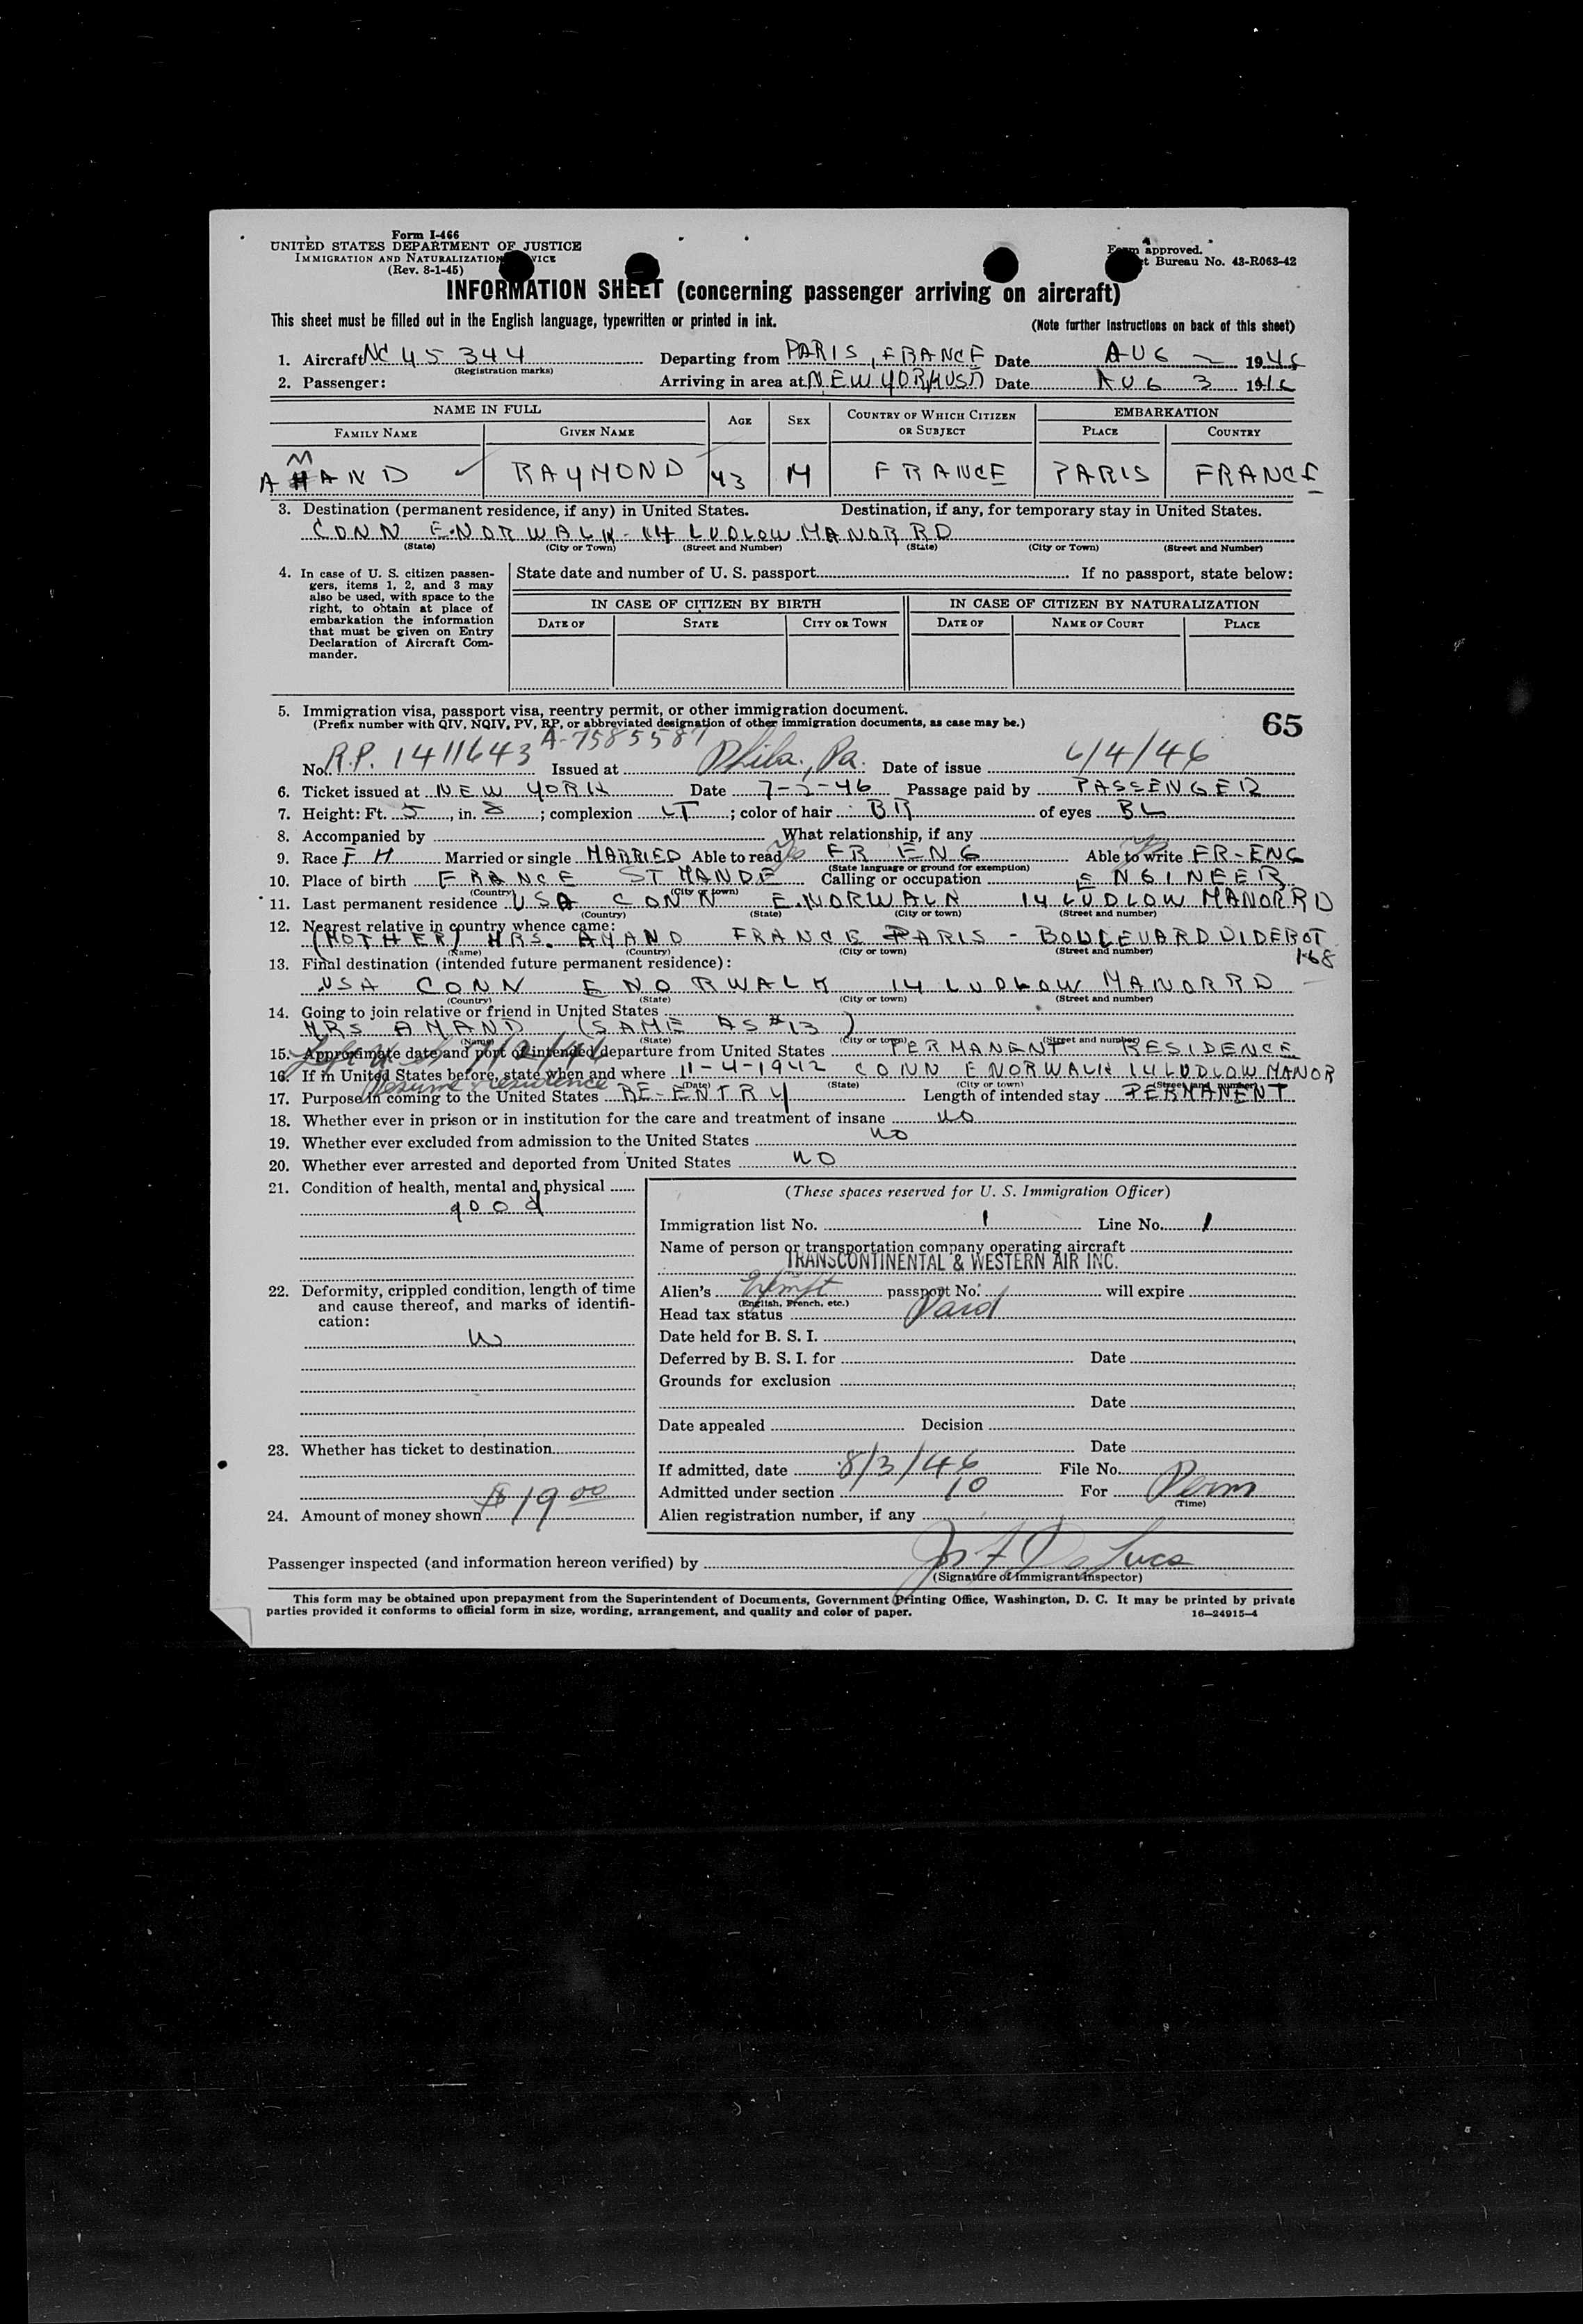 Form I-466
UNITED STATES DEPARTMENT OF JUSTICE
IMMIGRATION AND NATURALIZATION
(Rev. 8-1-45)
approved.
Bureau No. 43-R063-42
INFORMATION SHEET (concerning passenger arriving on aircraft)
This sheet must be filled out in the English language, typewritten or printed in ink.
(Note further instructions on back of this sheet)
1. Aircraft NC 45 344 Departing from PARIS, FRANCE Date AUG 2 1946
(Registration marks)
2. Passenger: Arriving in area at NEW YORK USA Date AUG 3 1946
NAME IN FULL AGE SEX COUNTRY OF WHICH CITIZEN OR SUBJECT EMBARKATION
FAMILY NAME GIVEN NAME PLACE COUNTRY
AMAND RAYMOND 43 M FRANCE PARIS FRANCE
3. Destination (permanent residence, if any) in United States. Destination, if any, for temporary stay in United States.
CONN E. NORWALK - 14 LUDLOW MANOR RD
(State) (City or Town) (Street and Number) (State) (City or Town) (Street and Number)
4. In case of U. S. citizen passen-
gers, items 1, 2, and 3 may
also be used, with space to the
right, to obtain at place of
embarkation the information
that must be given on Entry
Declaration of Aircraft Com-
mander.
State date and number of U. S. passport If no passport, state below:
IN CASE OF CITIZEN BY BIRTH IN CASE OF CITIZEN BY NATURALIZATION
DATE OF STATE CITY OR TOWN DATE OF NAME OF COURT PLACE
5. Immigration visa, passport visa, reentry permit, or other immigration document.
(Prefix number with QIV, NQIV, PV, RP, or abbreviated designation of other immigration documents, as case may be.)
65
A-7585587
No. R.P. 1411643 Issued at Phila., Pa. Date of issue 6/4/46
6. Ticket issued at NEW YORK Date 7-5-46 Passage paid by PASSENGER
7. Height: Ft. 5, in. 8; complexion LT; color of hair BR of eyes BL
8. Accompanied by What relationship, if any
9. Race FH Married or single MARRIED Able to read Yes FR ENG Able to write FR-ENG
(State language or ground for exemption)
10. Place of birth FRANCE ST MANDE Calling or occupation ENGINEER
(Country) (City or town)
11. Last permanent residence USA CONN E. NORWALK 14 LUDLOW MANOR RD
(Country) (State) (City or town) (Street and number)
12. Nearest relative in country whence came:
(MOTHER) MRS. AMAND FRANCE PARIS - BOULEVARD DIDEROT 168
(Name) (Country) (City or town) (Street and number)
13. Final destination (intended future permanent residence):
USA CONN E NORWALK 14 LUDLOW MANOR RD
(Country) (State) (City or town) (Street and number)
14. Going to join relative or friend in United States
MRS AMAND (SAME AS #13)
(Name) (State) (City or town) (Street and number)
15. Approximate date and port of intended departure from United States PERMANENT RESIDENCE
16. If in United States before, state when and where 11-4-1942 CONN E NORWALK 14 LUDLOW MANOR
(Date) (State) (City or town) (Street and number)
Resume residence
17. Purpose in coming to the United States RE-ENTRY Length of intended stay PERMANENT
18. Whether ever in prison or in institution for the care and treatment of insane NO
19. Whether ever excluded from admission to the United States NO
20. Whether ever arrested and deported from United States NO
21. Condition of health, mental and physical
good
22. Deformity, crippled condition, length of time
and cause thereof, and marks of identifi-
cation:
23. Whether has ticket to destination
24. Amount of money shown $19 00
(These spaces reserved for U. S. Immigration Officer)
Immigration list No. 1 Line No. 1
Name of person or transportation company operating aircraft
TRANSCONTINENTAL & WESTERN AIR INC.
Alien's Exempt passport No. will expire
(English, French, etc.)
Head tax status Paid
Date held for B. S. I.
Deferred by B. S. I. for Date
Grounds for exclusion
Date
Date appealed Decision
Date
If admitted, date 8/3/46 File No.
Admitted under section 10 For Perm
(Time)
Alien registration number, if any
Passenger inspected (and information hereon verified) by Jos F De Luca
(Signature of Immigrant Inspector)
This form may be obtained upon prepayment from the Superintendent of Documents, Government Printing Office, Washington, D. C. It may be printed by private
parties provided it conforms to official form in size, wording, arrangement, and quality and color of paper. 16—24915-4